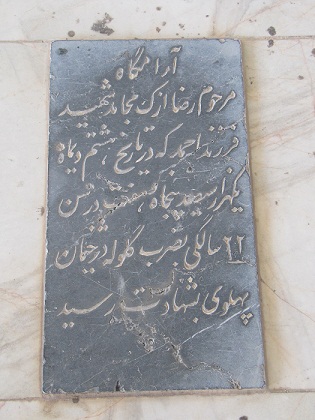 آرامگاه
مرحوم رضا ازکن مجاهد شهید
فرزند احمد که در تاریخ هشتم دیماه
یکهزار سیصد پنجاه هفت در سن
۲۲ سالگی بضرب گلوله درخیمان
پهلوی بشهادت رسید